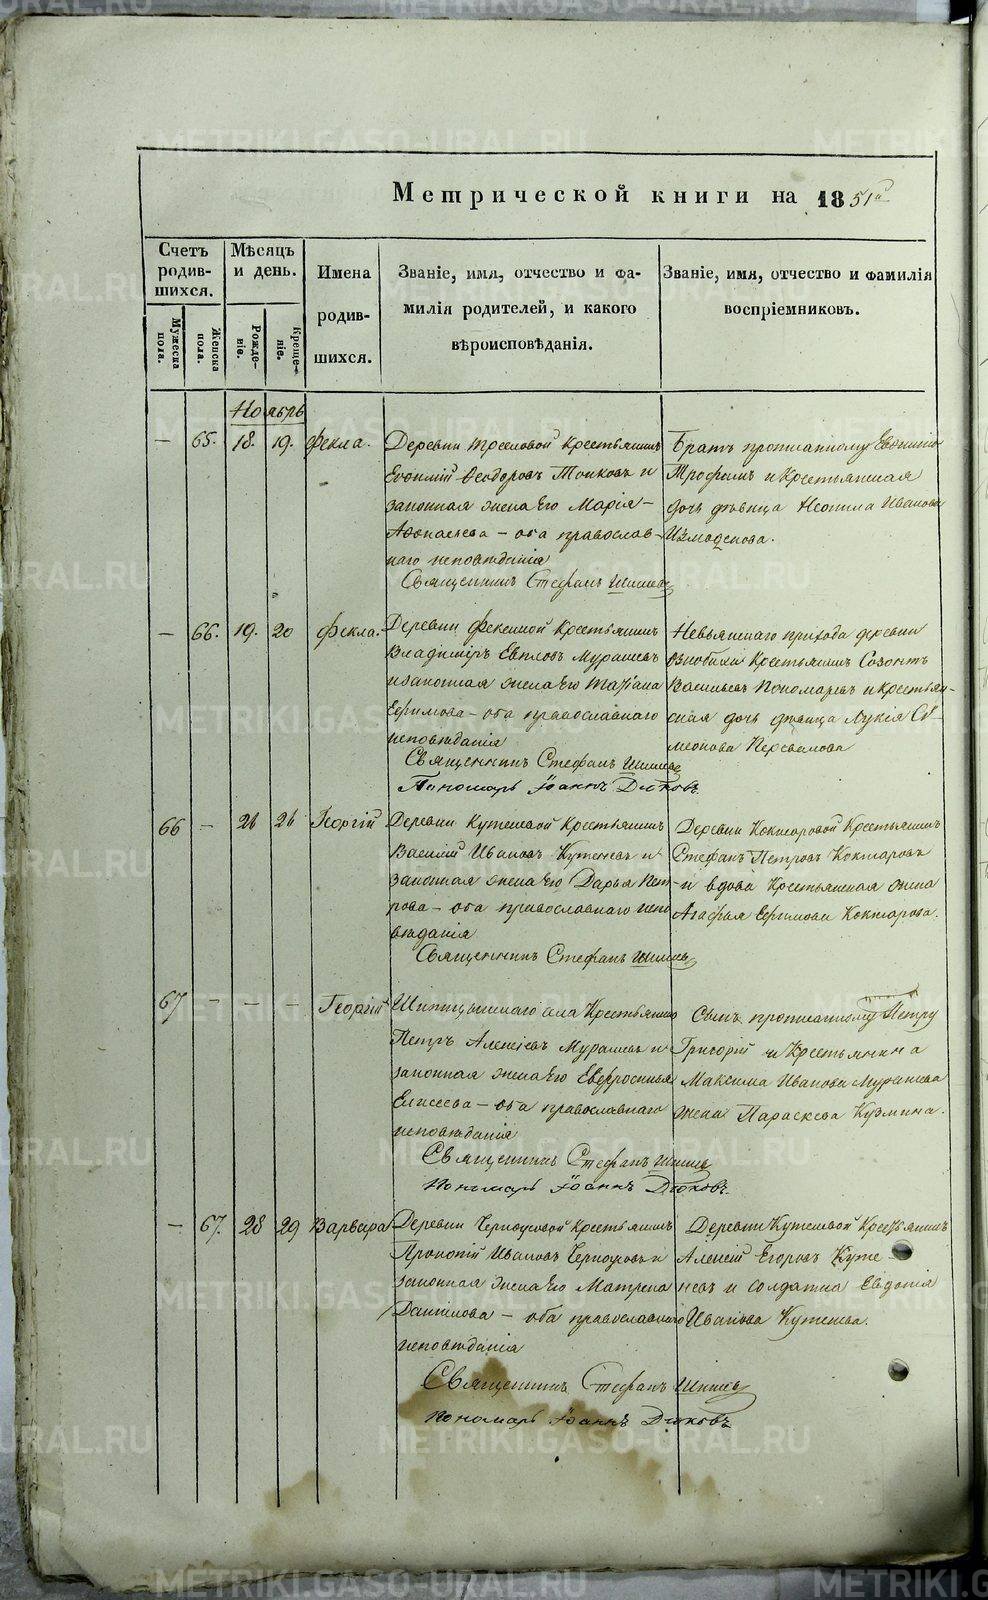 Метрической книги на 1851й
Счетъ родив-шихся.
Мѣсяцъ и день.
Имена родив-шихся.
Званіе, имя, отчество и фа-
милія родителей, и какого
вѣроисповѣданія.
Званіе, имя, отчество и фамилія
воспріемниковъ.
Мужеска пола.
Женска пола.
Рожде-ніе.
Креще-ніе.
Ноябрь
— 65. 18. 19. Фекла.
Деревни крестьянинъ
Евѳимій Ѳеодоровъ и
законная жена Его Марія
Аѳонасьева — оба православ-
наго исповѣданія
Священникъ Стефанъ Шишевъ
Братъ прописанному Евѳимію
Трофимъ и Крестьянская
дочь дѣвица Неонила Иванова
Измоденова.
— 66. 19. 20 Фекла.
Деревни Крестьянинъ
Владиміръ Евпловъ Мурашевъ
и законная жена Его Татіана
Ефимова — оба православнаго
исповѣданія
Священникъ Стефанъ Шишевъ
Пономарь Іоаннъ Дюковъ.
Невьянскаго прихода деревни
Крестьянинъ Созонтъ
Васильевъ Пономаревъ и крестьян-
ская дочь дѣвица Лукія Си-
меонова Перевалова
66 — 26 26 Георгій
Деревни Кутеневой Крестьянинъ
Василій Ивановъ Кутеневъ и
законная жена Его Дарья Пет-
рова — оба православнаго испо
вѣданія
Священникъ Стефанъ Шишевъ
Деревни Кокшаровой Крестьянинъ
Стефанъ Петровъ Кокшаровъ
и вдова Крестьянская жена
Агафья Ефимова Кокшарова.
67 — — — Георгій
села Крестьянинъ
Петръ Алексѣевъ Мурашевъ и
законная жена Его Евфросинья
Елисеева — оба православнаго
исповѣданія
Священникъ Стефанъ Шишевъ
Пономарь Іоаннъ Дюковъ.
Сынъ прописанному Петру
Григорій и Крестьянина
Максима Иванова Мурашева
жена Параскева Кузмина.
— 67. 28 29 Варвара
Деревни Черноусовой крестьянинъ
Прокопій Ивановъ Черноусовъ и
законная жена Его Матрена
Данилова — оба православнаго
исповѣданія
Священникъ Стефанъ Шишевъ
Пономарь Іоаннъ Дюковъ
Деревни Кутеневой Крестьянинъ
Алексѣй Егоровъ Куте-
невъ и солдатка Евдокія
Иванова Кутенева.
METRIKI.GASO-URAL.RU